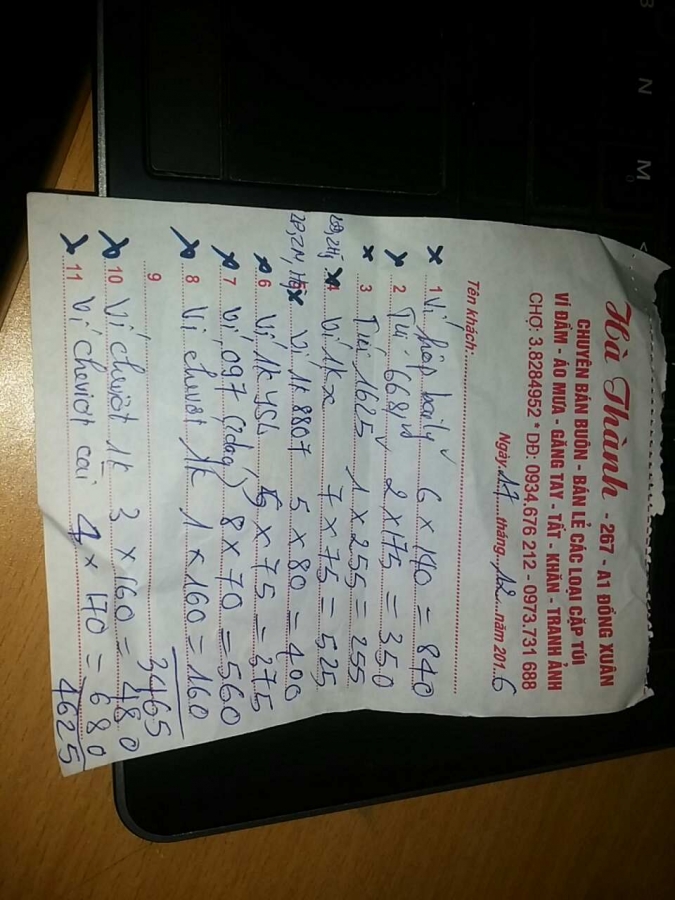 Hà Thành - 267 - A1 ĐỒNG XUÂN
CHUYÊN BÁN BUÔN - BÁN LẺ CÁC LOẠI CẶP TÚI
VÍ ĐẦM - ÁO MƯA - GĂNG TAY - TẤT - KHĂN - TRANH ẢNH
CHỢ: 3.8284952 * DĐ: 0934.676 212 - 0973.731 688
Ngày 17 tháng 12 năm 2016
Tên khách:
x 1 Ví hộp 6 x 140 = 840
x 2 Túi 668 2 x 175 = 350
x 3 Túi 1625 1 x 255 = 255
x 4 Ví 1k x 7 x 75 = 525
x 5 Ví 1k 8807 5 x 80 = 400
x 6 Ví 1k 5 x 75 = 375
x 7 Ví 097 8 x 70 = 560
x 8 Ví chuột 1k 1 x 160 = 160
9 3465
x 10 Ví chuột 1k 3 x 160 = 480
x 11 Ví cài 4 x 170 = 680
4625
B N M